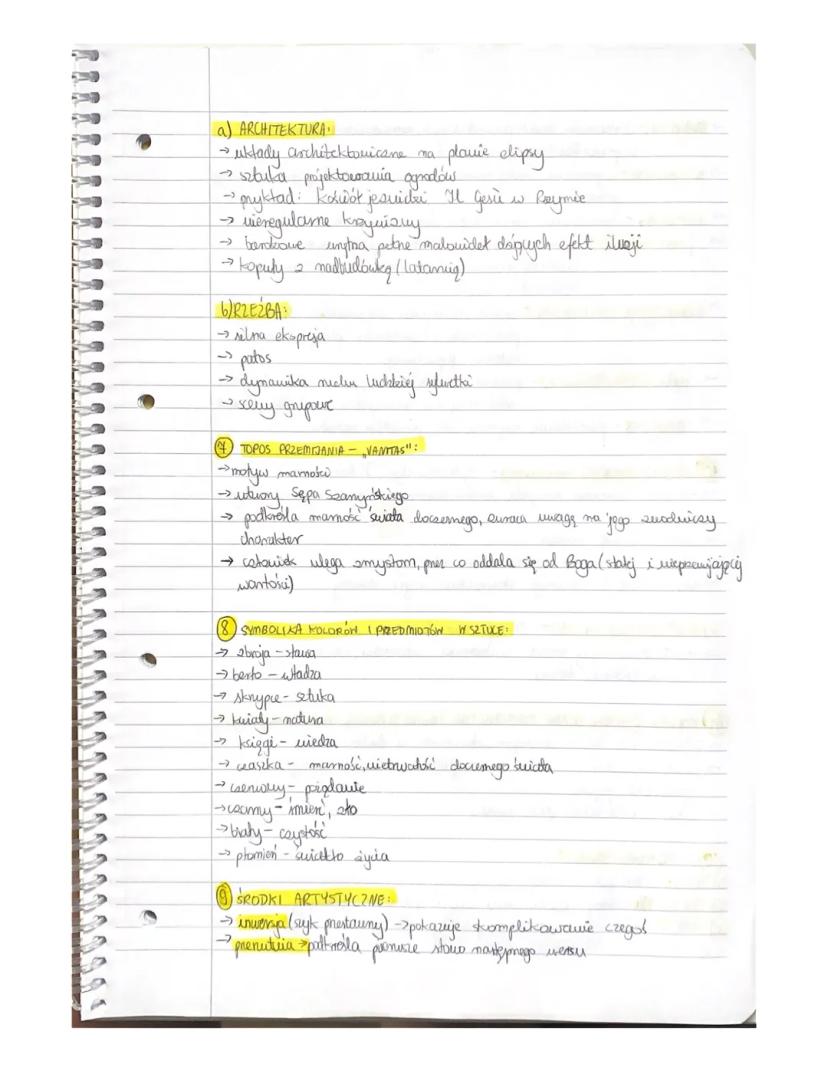 a) ARCHITEKTURA:
→ układy architektoniczne na planie elipsy
→ sztuka projektowania ogrodów
→ przykład: kościół jezuicki Il Gesù w Rzymie
→ nieregularne krzywizny
→ barokowe wnętrza pełne malowideł dających efekt iluzji
→ kopuły z nadbudówką (latarnią)
b) RZEŹBA:
→ silna ekspresja
→ patos
→ dynamika ruchu ludzkiej sylwetki
→ sceny grupowe
7 TOPOS PRZEMIJANIA – „VANITAS":
→ motyw marności
→ utwory Sępa Szarzyńskiego
→ podkreśla marność świata doczesnego, zwraca uwagę na jego zwodniczy
charakter
→ człowiek ulega zmysłom, przez co oddala się od Boga (stałej i nieprzemijającej
wartości)
8 SYMBOLIKA KOLORÓW I PRZEDMIOTÓW W SZTUCE:
→ zbroja – sława
→ berło – władza
→ skrzypce – sztuka
→ kwiaty – natura
→ księgi – wiedza
→ czaszka – marność, nietrwałość doczesnego świata
→ czerwony – pożądanie
→ czarny – śmierć, zło
→ biały – czystość
→ płomień – światło życia
9 ŚRODKI ARTYSTYCZNE:
→ inwersja (szyk przestawny) → pokazuje skomplikowanie czegoś
→ przerzutnia → podkreśla pierwsze słowo następnego wersu